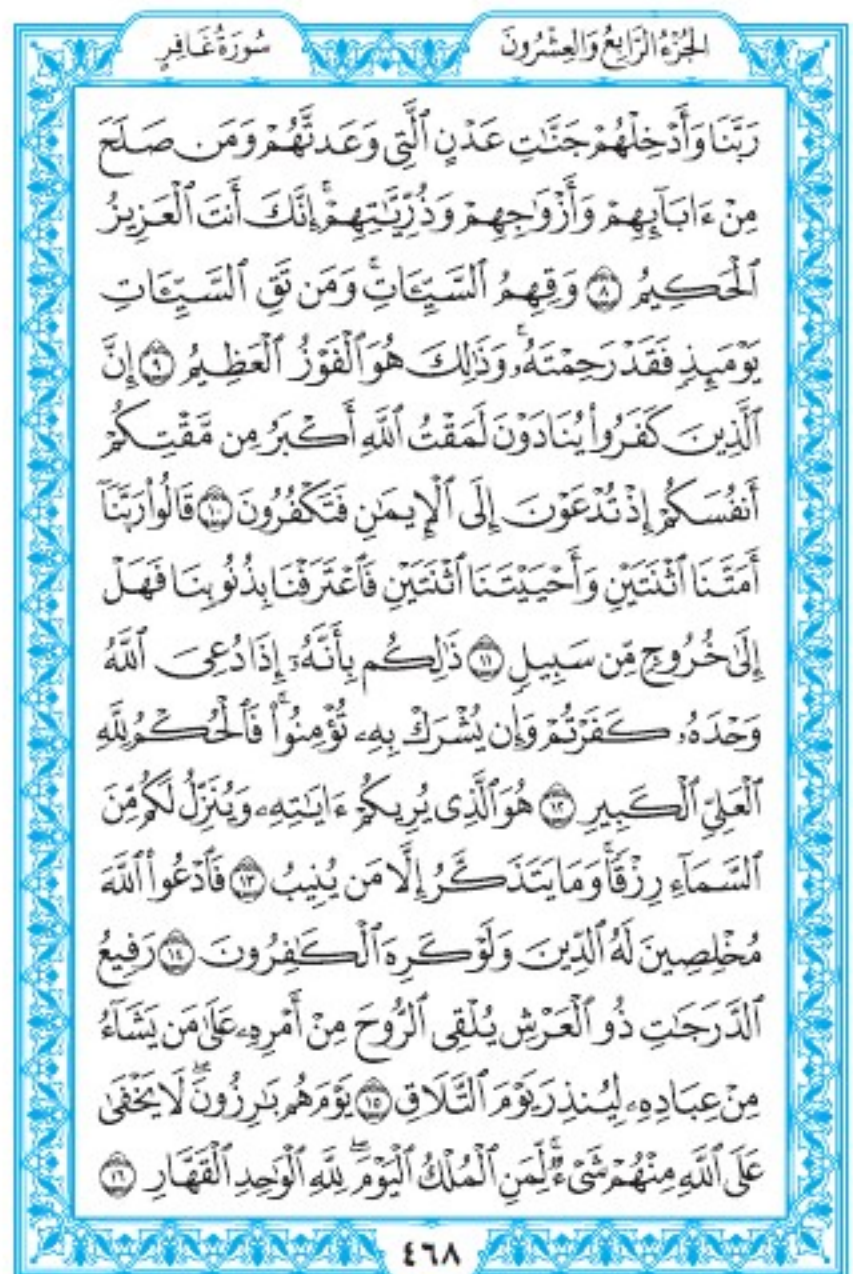 الجُزْءُ الرَّابِعُ وَالعِشْرُونَ
سُورَةُ غَافِرٍ
رَبَّنَا وَأَدْخِلْهُمْ جَنَّٰتِ عَدْنٍ ٱلَّتِى وَعَدتَّهُمْ وَمَن صَلَحَ
مِنْ ءَابَآئِهِمْ وَأَزْوَٰجِهِمْ وَذُرِّيَّٰتِهِمْ ۚ إِنَّكَ أَنتَ ٱلْعَزِيزُ
ٱلْحَكِيمُ ٨ وَقِهِمُ ٱلسَّيِّـَٔاتِ ۚ وَمَن تَقِ ٱلسَّيِّـَٔاتِ
يَوْمَئِذٍ فَقَدْ رَحِمْتَهُۥ ۚ وَذَٰلِكَ هُوَ ٱلْفَوْزُ ٱلْعَظِيمُ ٩ إِنَّ
ٱلَّذِينَ كَفَرُوا۟ يُنَادَوْنَ لَمَقْتُ ٱللَّهِ أَكْبَرُ مِن مَّقْتِكُمْ
أَنفُسَكُمْ إِذْ تُدْعَوْنَ إِلَى ٱلْإِيمَٰنِ فَتَكْفُرُونَ ١٠ قَالُوا۟ رَبَّنَآ
أَمَتَّنَا ٱثْنَتَيْنِ وَأَحْيَيْتَنَا ٱثْنَتَيْنِ فَٱعْتَرَفْنَا بِذُنُوبِنَا فَهَلْ
إِلَىٰ خُرُوجٍ مِّن سَبِيلٍ ١١ ذَٰلِكُم بِأَنَّهُۥٓ إِذَا دُعِىَ ٱللَّهُ
وَحْدَهُۥ كَفَرْتُمْ وَإِن يُشْرَكْ بِهِۦ تُؤْمِنُوا۟ ۚ فَٱلْحُكْمُ لِلَّهِ
ٱلْعَلِىِّ ٱلْكَبِيرِ ١٢ هُوَ ٱلَّذِى يُرِيكُمْ ءَايَٰتِهِۦ وَيُنَزِّلُ لَكُم مِّنَ
ٱلسَّمَآءِ رِزْقًا ۚ وَمَا يَتَذَكَّرُ إِلَّا مَن يُنِيبُ ١٣ فَٱدْعُوا۟ ٱللَّهَ
مُخْلِصِينَ لَهُ ٱلدِّينَ وَلَوْ كَرِهَ ٱلْكَٰفِرُونَ ١٤ رَفِيعُ
ٱلدَّرَجَٰتِ ذُو ٱلْعَرْشِ يُلْقِى ٱلرُّوحَ مِنْ أَمْرِهِۦ عَلَىٰ مَن يَشَآءُ
مِنْ عِبَادِهِۦ لِيُنذِرَ يَوْمَ ٱلتَّلَاقِ ١٥ يَوْمَ هُم بَٰرِزُونَ ۖ لَا يَخْفَىٰ
عَلَى ٱللَّهِ مِنْهُمْ شَىْءٌ ۚ لِّمَنِ ٱلْمُلْكُ ٱلْيَوْمَ ۖ لِلَّهِ ٱلْوَٰحِدِ ٱلْقَهَّارِ ١٦
٤٦٨